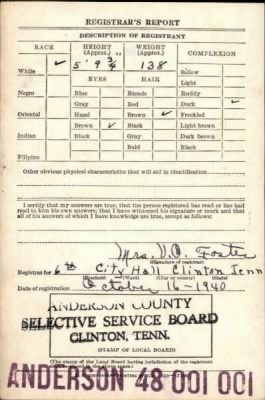 REGISTRAR'S REPORT
DESCRIPTION OF REGISTRANT
RACE HEIGHT (Approx.) WEIGHT (Approx.) COMPLEXION
White ✓ 5' 9 3/4" 138 Sallow
EYES HAIR Light
Negro Blue Blonde Ruddy
Gray Red Dark ✓
Oriental Hazel Brown ✓ Freckled
Brown ✓ Black Light brown
Indian Black Gray Dark brown
Bald Black
Filipino
Other obvious physical characteristics that will aid in identification
I certify that my answers are true; that the person registered has read or has had
read to him his own answers; that I have witnessed his signature or mark and that
all of his answers of which I have knowledge are true, except as follows:
Mrs. Foster
(Signature of registrar)
Registrar for 6th City Hall Clinton Tenn
(Precinct) (Ward) (City or county) (State)
Date of registration October 16-1940
ANDERSON COUNTY
SELECTIVE SERVICE BOARD
CLINTON, TENN.
(STAMP OF LOCAL BOARD)
(The stamp of the Local Board having jurisdiction of the registrant
shall be placed in the above space.)
ANDERSON 48 001 001